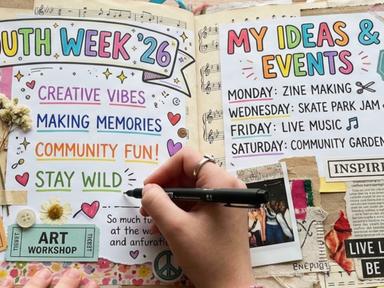 OUTH WEEK '26
CREATIVE VIBES
MAKING MEMORIES
COMMUNITY FUN!
STAY WILD
TICKET
ART
WORKSHOP
TICKET
So much fu
at the wo
and
MY IDEAS &
EVENTS
MONDAY: ZINE MAKING
WEDNESDAY: SKATE PARK JAM
FRIDAY: LIVE MUSIC
SATURDAY: COMMUNITY GARDEN
INSPIRE
LIVE L
BE